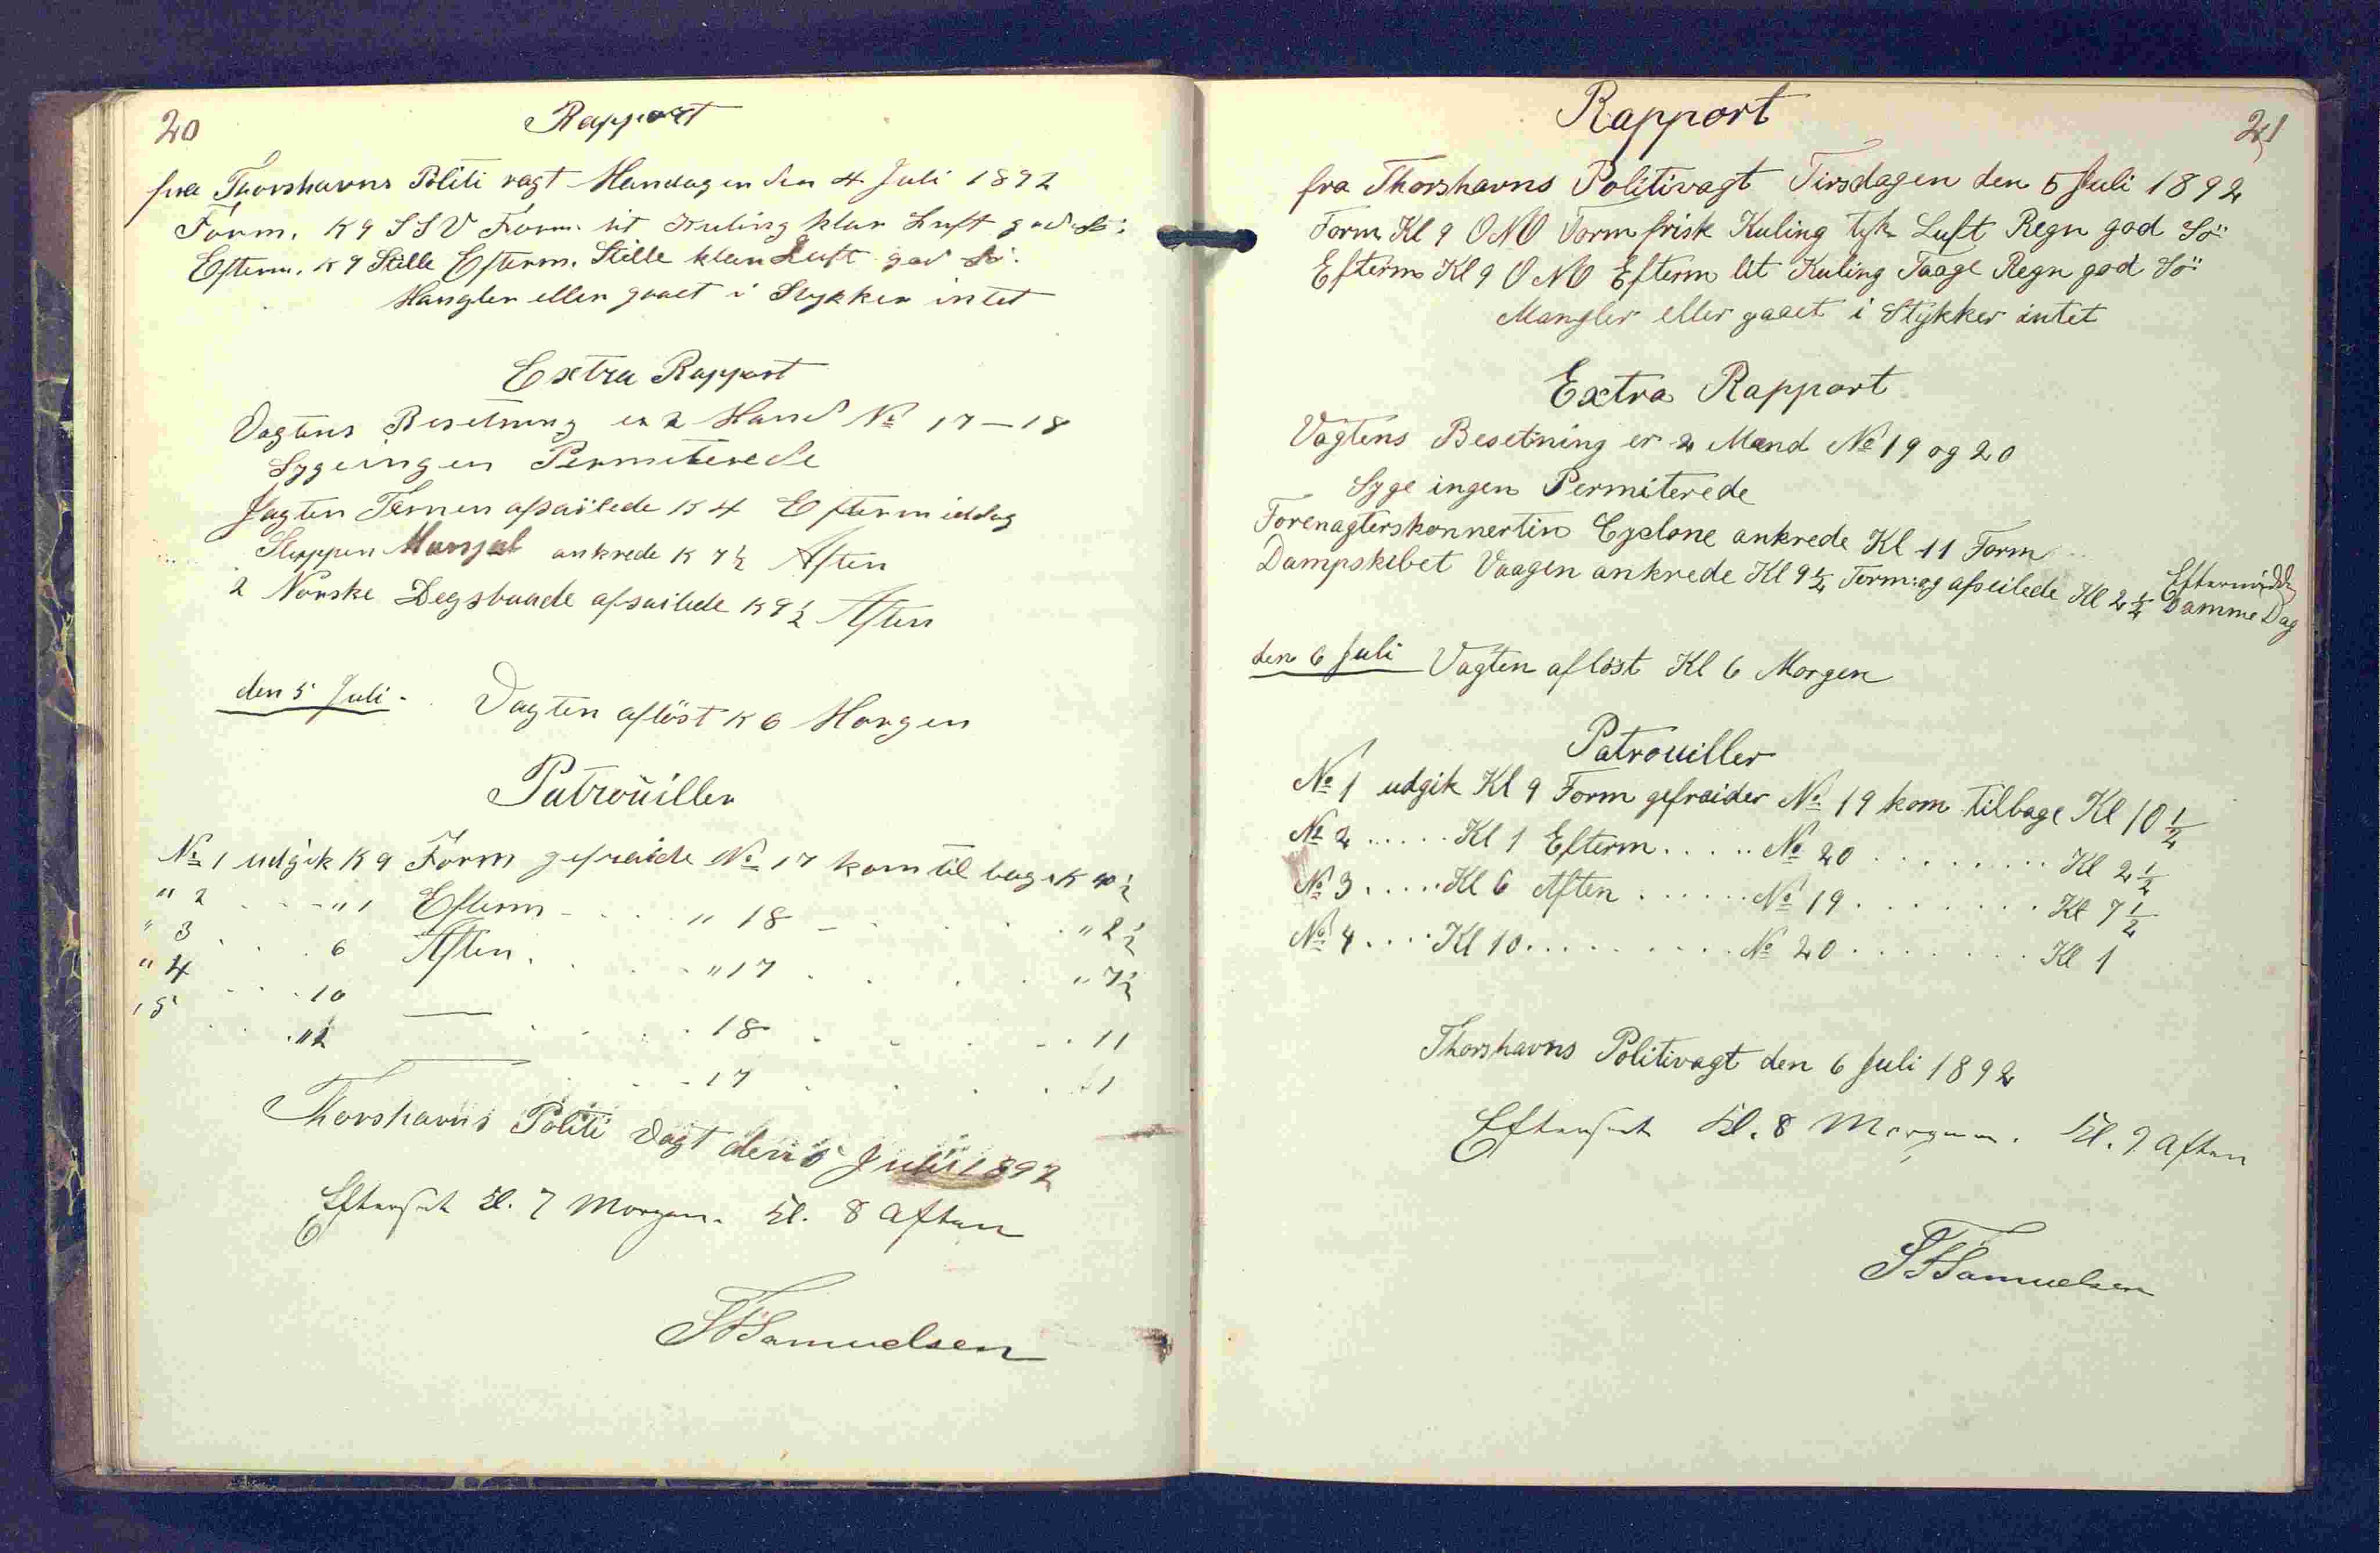 20
Rapport
fra Thorshavns Politi vagt Mandagen den 4 Juli 1892
Form. K 9 SSV Form. lit Kuling klar Luft god Sö.
Efterm. K 9 Stille Efterm. Stille klar Luft god Sö.
Mangler eller gaaet i Stykker intet
Extra Rapport
Vagtens Besetning er 2 Mand № 17 – 18
Syge ingen Permiterede
Jagten Ternen afsailede K 4 Eftermiddag
Sluppen ankrede K 7½ Aften
2 Norske afsailede K 9½ Aften
den 5 Juli. Vagten aflöst K 6 Morgen
Patrouiller
№ 1 udgik K 9 Form gefraide № 17 kom til bage K 10½
" 2 . . . " 1 Efterm . . . " 18 . . . " 2½
" 3 . . . 6 Aften . . . " 17 . . . " 7½
" 4 . . . 10 — . . . 18 . . . 11
" 5 . . . " 12 — . . . 17 . . . 1
Thorshavns Politi Vagt den 5 Juli 1892
Efterset Kl. 7 Morgen. Kl. 8 Aften
Samuelsen
21
Rapport
fra Thorshavns Politivagt Tirsdagen den 5 Juli 1892
Form Kl 9 ONO Form frisk Kuling tyk Luft Regn god Sö
Efterm Kl 9 ONO Efterm lit Kuling Taage Regn god Sö
Mangler eller gaaet i Stykker intet
Extra Rapport
Vagtens Besetning er 2 Mand № 19 og 20
Syge ingen Permiterede
Forenagterskonnertin Cyclone ankrede Kl 11 Form
Dampskibet Vaagen ankrede Kl 9½ Form: og afseilede Kl 2½ Eftermidd Samme Dag
den 6 Juli Vagten aflöst Kl 6 Morgen
Patrouiller
№ 1 udgik Kl 9 Form gefraider № 19 kom tilbage Kl 10½
№ 2 ..... Kl 1 Efterm ..... № 20 ........ Kl 2½
№ 3 ..... Kl 6 Aften ...... № 19 ........ Kl 7½
№ 4 .... Kl 10 ......... № 20 ........ Kl 1
Thorshavns Politivagt den 6 Juli 1892
Efterset Kl. 8 Morgen. Kl. 9 Aften
Samuelsen